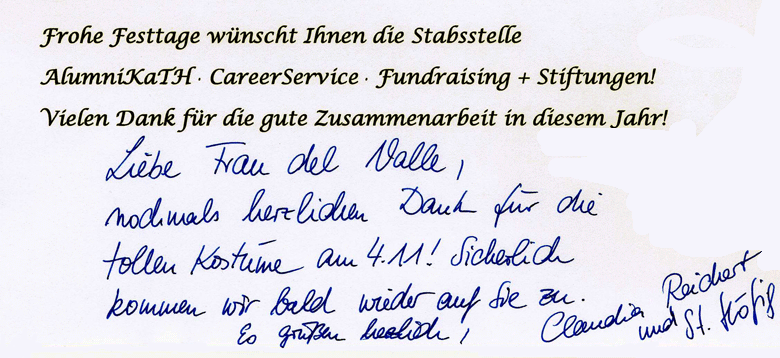 Frohe Festtage wünscht Ihnen die Stabsstelle
AlumniKaTH · CareerService · Fundraising + Stiftungen!
Vielen Dank für die gute Zusammenarbeit in diesem Jahr!
Liebe Frau del Valle,
nochmals herzlichen Dank für die
tollen Kostüme am 4.11! Sicherlich
kommen wir bald wieder auf Sie zu.
Es grüßen herzlich,
Claudia Reichert
und St.